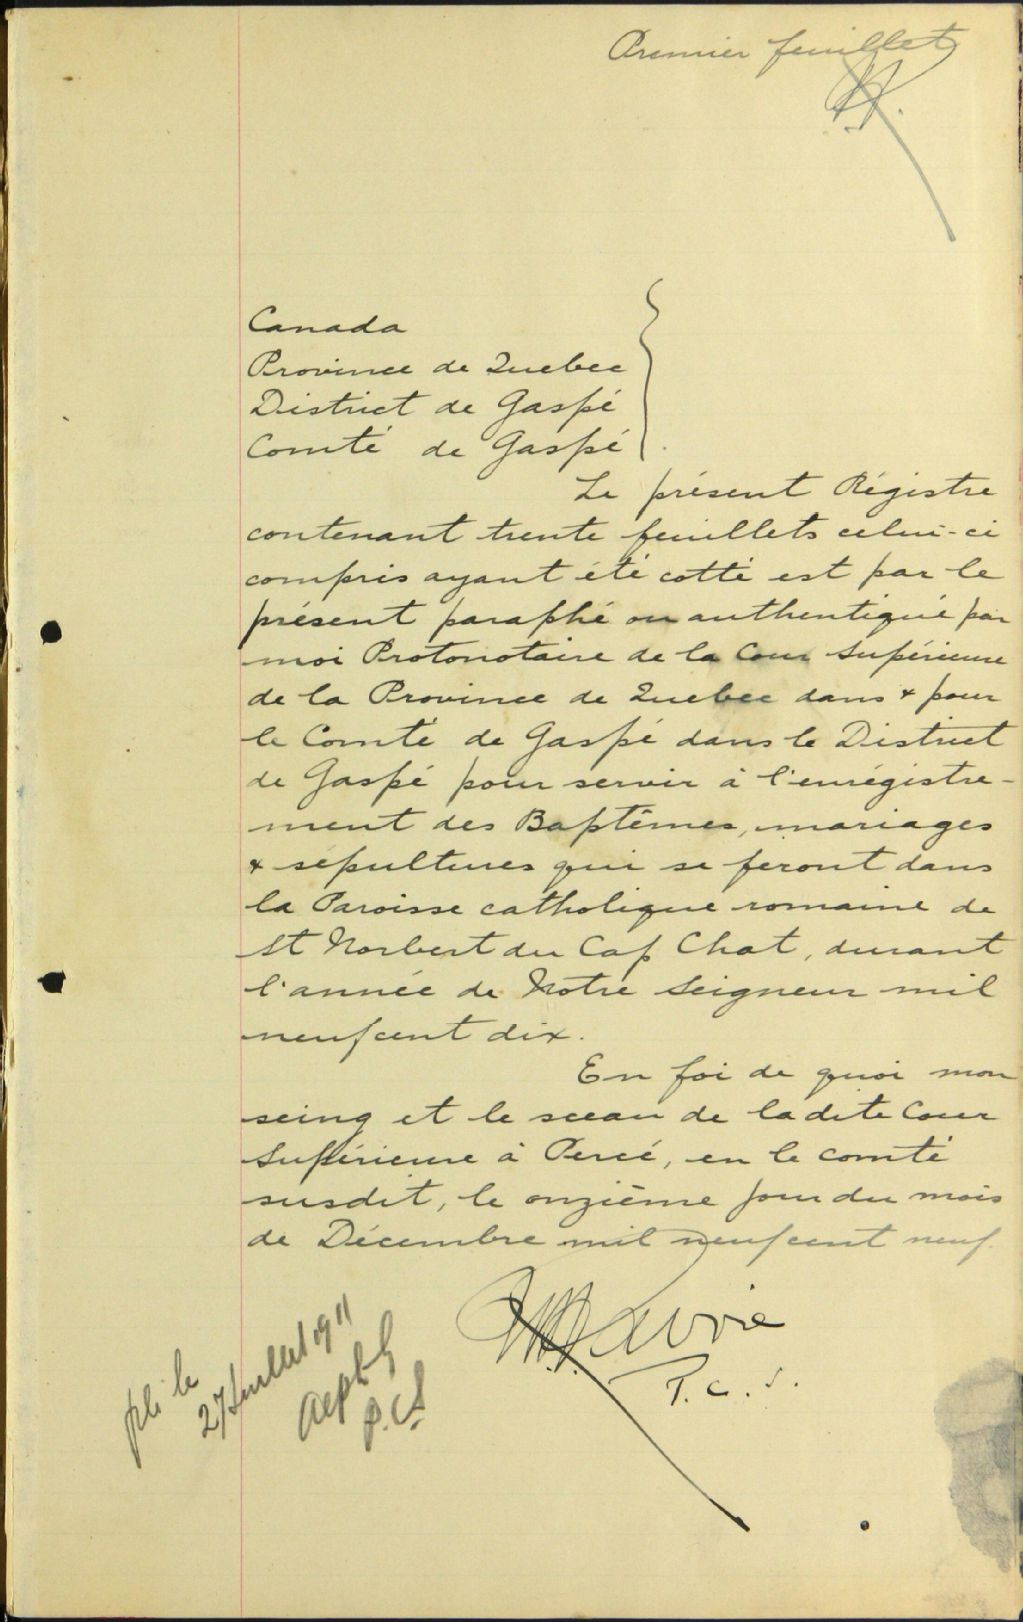 Premier feuillet
Canada
Province de Quebec
District de Gaspé
Comté de Gaspé
Le présent Régistre
contenant trente feuillets celui-ci
compris ayant été cotté est par le
présent paraphé ou authentiqué par
moi Protonotaire de la Cour Supérieure
de la Province de Quebec dans & pour
le Comté de Gaspé dans le District
de Gaspé pour servir à l'enrégistre-
ment des Baptêmes, mariages
& sépultures qui se feront dans
la Paroisse catholique romaine de
St Norbert du Cap Chat, durant
l'année de Notre Seigneur mil
neufcent dix.
En foi de quoi mon
seing et le sceau de la dite Cour
Supérieure à Percé, en le comté
susdit, le onzième jour du mois
de Décembre mil neufcent neuf.
Lavoie
P.C.S.
27 Juillet 1911
P.C.S